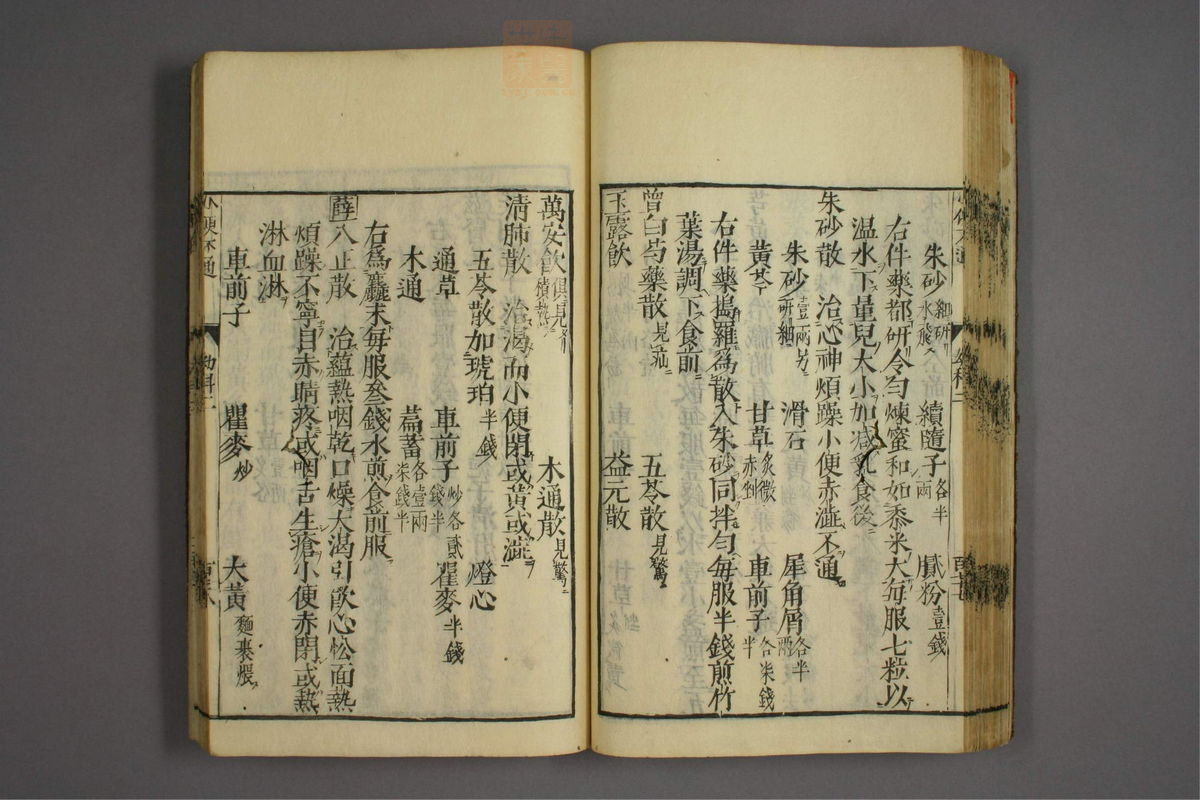 朱砂 細研水飛 續隨子 各半兩 膩粉 壹錢
右件藥都研令勻煉蜜和如黍米大每服七粒以
溫水下量兒大小加減乳食後
朱砂散 治心神煩躁小便赤澁不通
朱砂 壹兩另研細 滑石 犀角屑 各半兩
黃芩 甘草 炙微赤剉 車前子 各柒錢半
右件藥搗羅爲散入朱砂同拌勻每服半錢煎竹
葉湯調下食前
曾白芍藥散 五苓散 見驚
玉露飲 益元散
萬安飲 木通散 見驚
清肺散 治渴而小便閉或黃或澁
五苓散加琥珀 半錢 燈心
通草 車前子 炒各貳錢半 瞿麥 半錢
木通 萹蓄 各壹兩柒錢半
右爲麤末每服叁錢水煎食前服
薛八正散 治蘊熱咽乾口燥大渴引飲心忪面熱
煩躁不寧目赤睛疼或咽舌生瘡小便赤閉或熱
淋血淋
車前子 瞿麥 炒 大黃 麵裹煨
小便不通